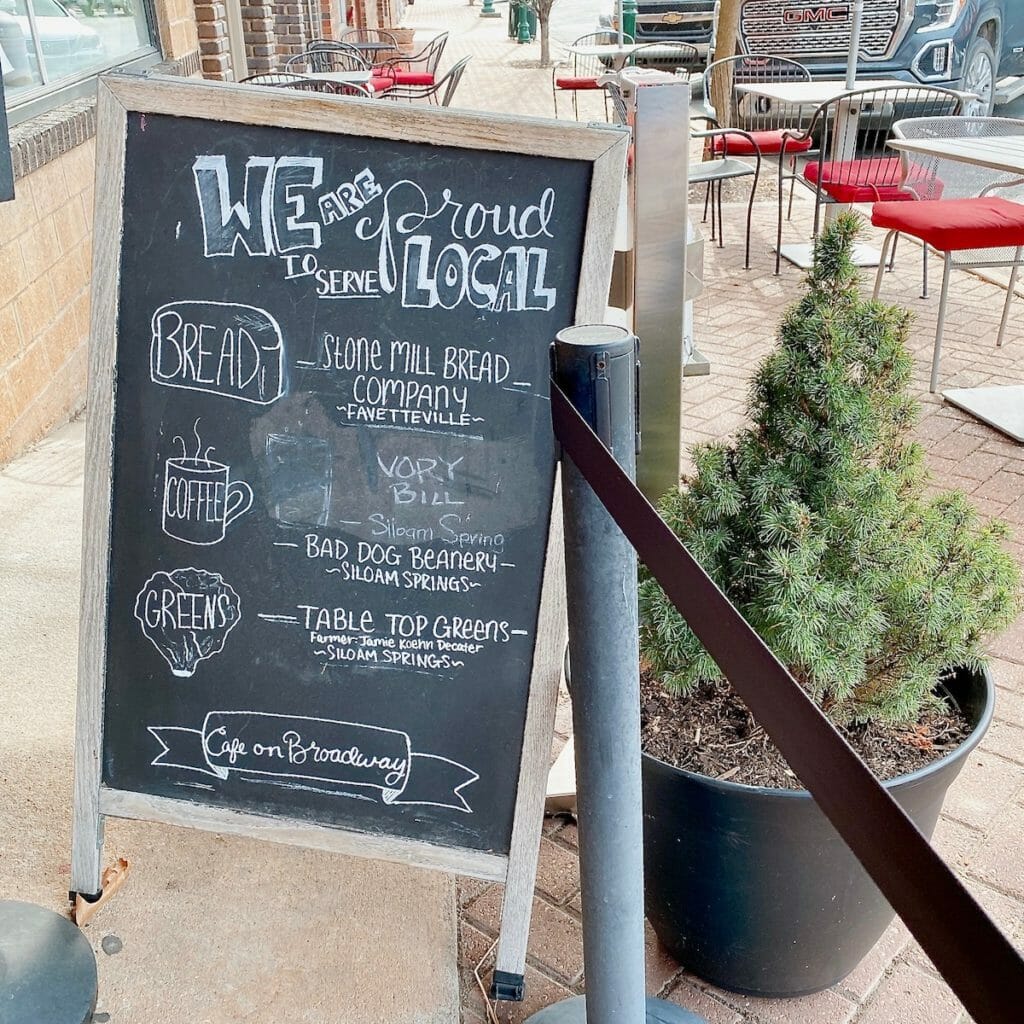 WE ARE Proud
TO SERVE LOCAL
BREAD
STONE MILL BREAD
COMPANY
~FAYETTEVILLE~
COFFEE
VORY
BILL
- Siloam Spring
- BAD DOG BEANERY -
~SILOAM SPRINGS~
GREENS
- TABLE TOP GREENS -
Farmer: Jamie Koehn Decater
~SILOAM SPRINGS~
Cafe on Broadway
GMC